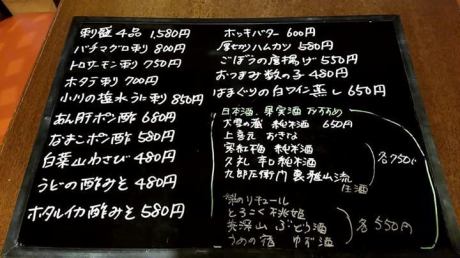 刺盛4品 1,580円
バチマグロ刺 800円
トロサーモン刺 750円
ホタテ刺 700円
小川の塩水うに刺 850円
あん肝ポン酢 680円
なまこポン酢 580円
白葉山わさび 480円
うどの酢みそ 480円
ホタルイカ酢みそ 580円
ホッキバター 600円
厚切りハムカツ 580円
ごぼうの唐揚げ 550円
おつまみ数の子 480円
はまぐりの白ワイン蒸し 650円
日本酒、果実酒 おすすめ
大雪の蔵 純米酒 650円
上喜元 おきな
寒紅梅 純米酒
久礼 辛口純米酒
九郎左衛門 裏雅山流
生酒
各750円
梨のリキュール
とろこく桃姫
美深山 ぶどう酒
うめの宿 ゆず酒
各550円